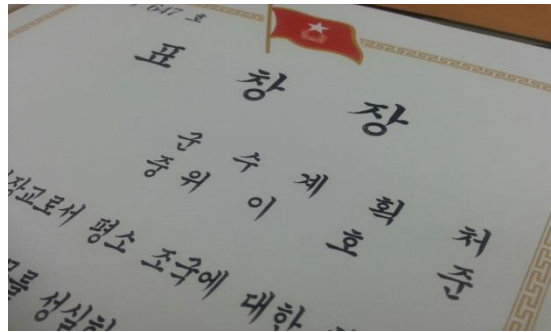 647 호
표 창 장
군 수 계 획 처
중 위 이 호 준
장교로서 평소 조국에 대한
성실히